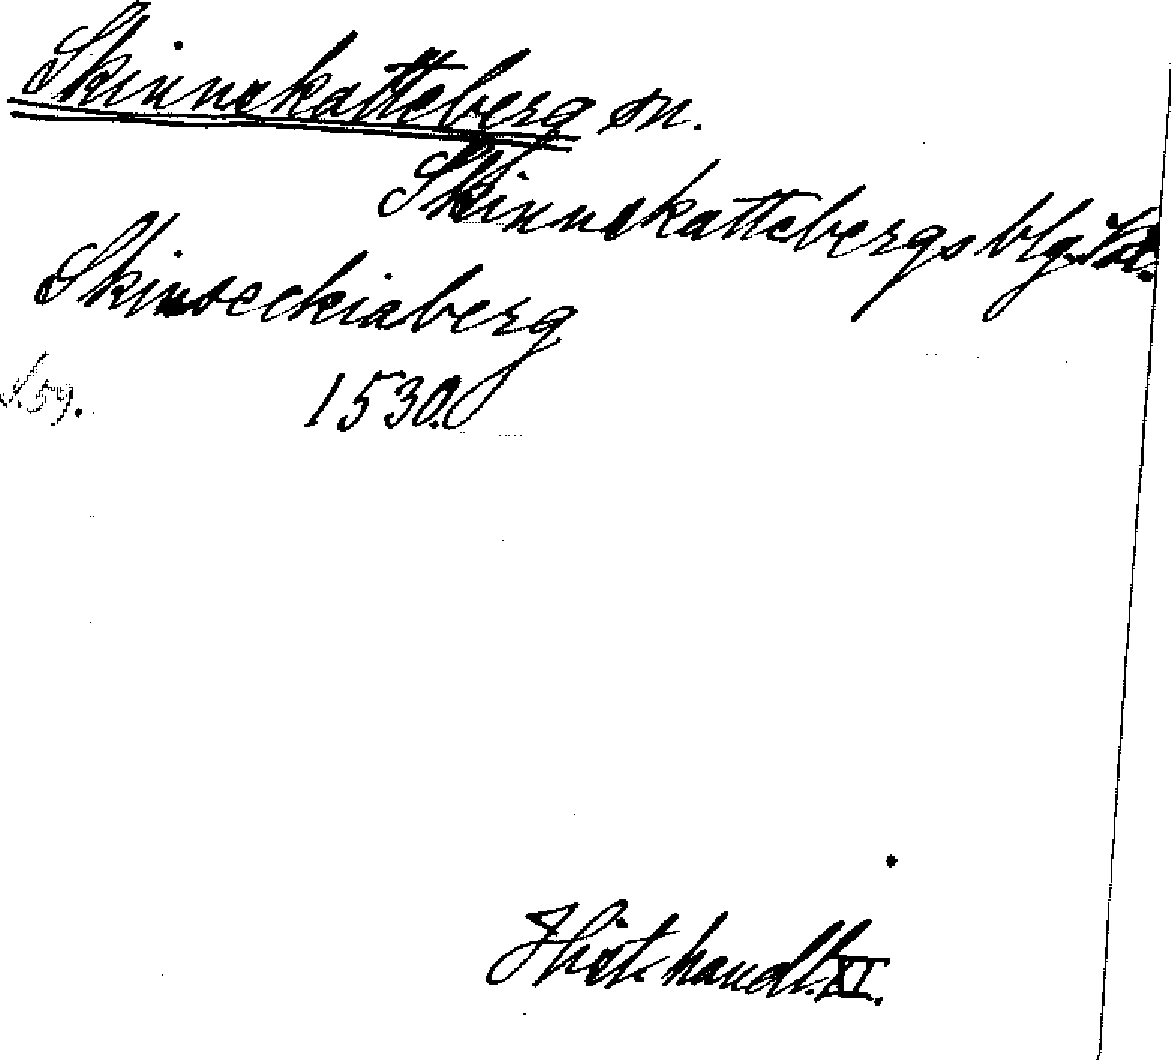 Skinnskatteberg sn.
Skinnskattebergs blg.
Skinseckiaberg
S.59. 1530.
Hist. handl. XI.